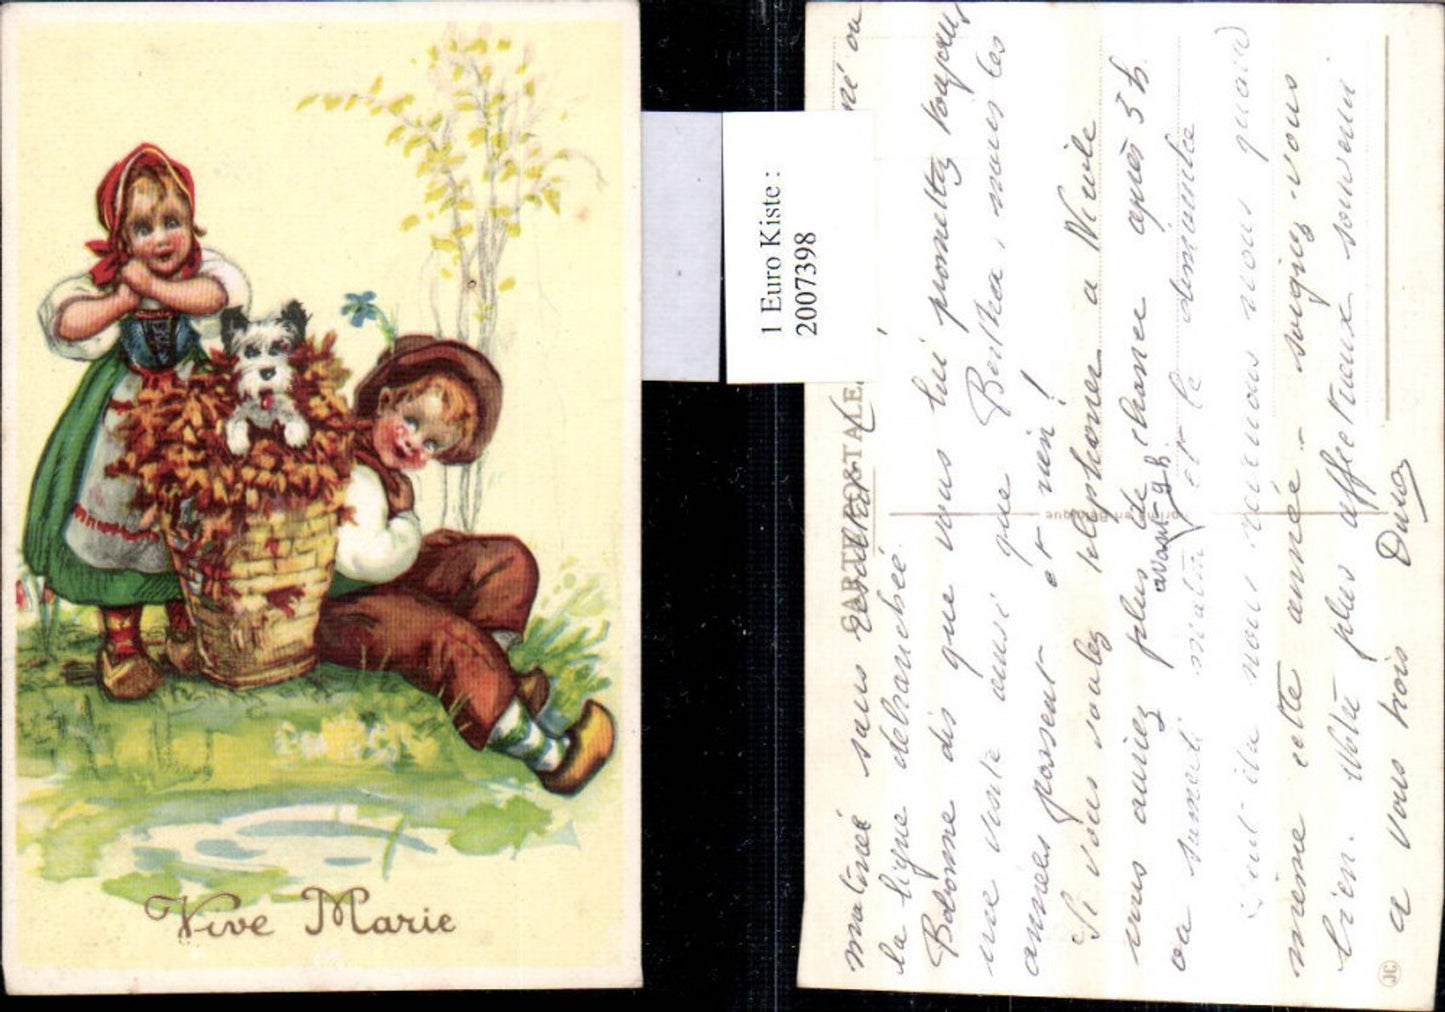 Vive Marie
1 Euro Kiste :
2007398
CARTE POSTALE
matinée sans
la ligne débranchée.
Bobonne dis que vous lui promettez toujours
une visite aussi que Bertha, mais les
années passent et rien!
Si vous voulez téléphoner a Nivelle
vous auriez plus de chance après 5 h
avant 9 h
ou samedi matin et le dimanche
nous quand
même cette année - soignez-vous
bien. Votre plus affectueux souvenir
a vous trois
JC